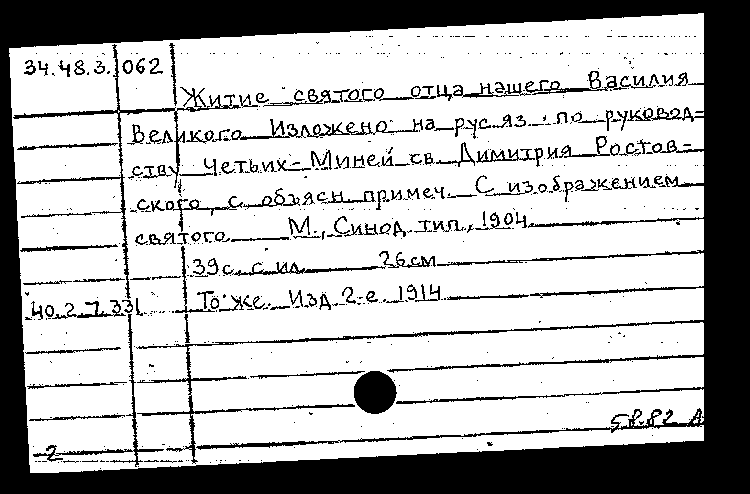 34.48.3.062
Житие святого отца нашего Василия
Великого Изложено на рус.яз. по руковод=
ству Четьих-Миней св. Димитрия Ростов=
ского, с объясн. примеч. С изображением
святого М., Синод. тип., 1904.
39с. с ил. 26см
40.2.7.331 То же. Изд. 2-е. 1914
58.82 А
2